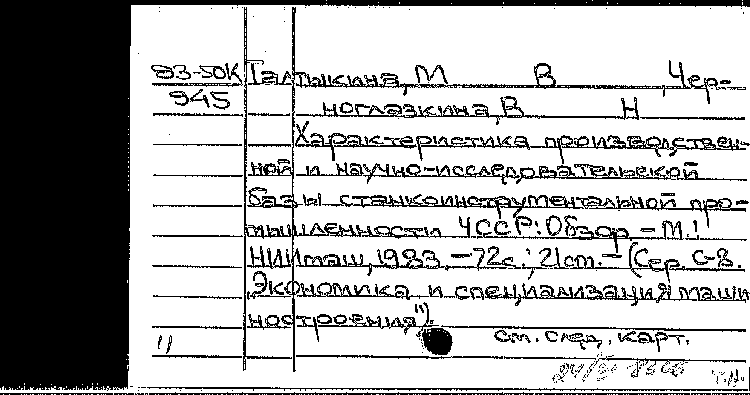 93-50К Галтыкина, М В , Чер-
945 ноглазкина, В Н
Характеристика производствен-
ной и научно-исследовательской
базы станкоинструментальной про-
мышленности ЧССР: Обзор - М.:
НИИмаш, 1983. - 72с.; 21см. - (Сер. С-8.
Экономика и специализация маши
ностроения").
1) см. след. карт.
Т.Н.